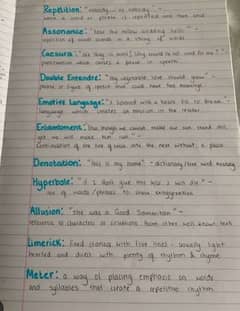 Repetition: "nobody, oh nobody" -
when a word or phrase is repeated more than once
Assonance: "how the mellow wedding bells"
repetition of vowel sounds in a string of words
Caesura: "
punctuation which causes a pause in speech
Double Entendre: "My vegetable love should grow" -
phrase or figure of speech that could have two meanings
Emotive Language: "I loaned with a heart
language which creates an emotion in the reader
Enjambment:
yet we will make him run" -
continuation of one line of verse into the next without a pause
Denotation: "This is my home" - dictionary/
Hyperbole: "If I don't give this kiss I will die" -
use of words/phrases to show exaggeration
Allusion: "She was a Good Samaritan" -
reference to characters or situations from other well known text
Limerick: fixed stanzas with five lines - usually light
hearted and dealt with plenty of rhythm & rhyme
Meter: a way of placing emphasis on words
and syllables that create a repetitive rhythm